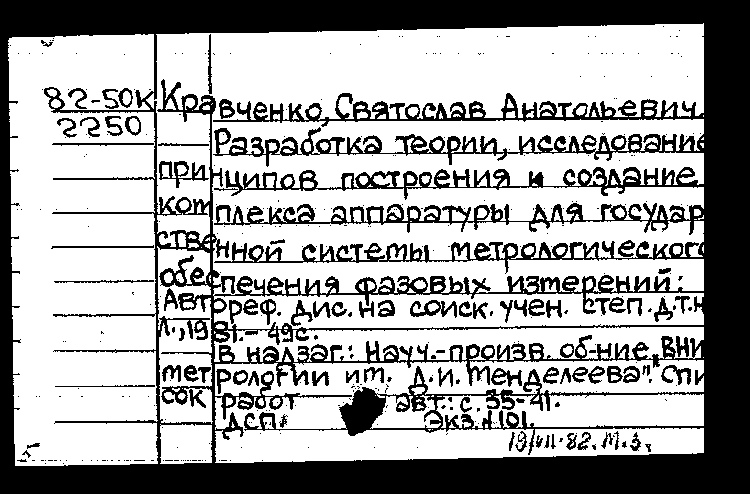 82-50к Кравченко, Святослав Анатольевич.
2250
Разработка теории, исследование
принципов построения и создание
комплекса аппаратуры для государ
ственной системы метрологического
обеспечения фазовых измерений:
Автореф. дис. на соиск. учен. степ. д.т.н
Л., 1981.- 49с.
В надзаг.: Науч.-произв. об-ние "ВНИ
метрологии им. Д.И. Менделеева". Спи
сок работ авт.: с. 35-41.
ДСП. Экз. N101.
19/VII-82. М.З.
5